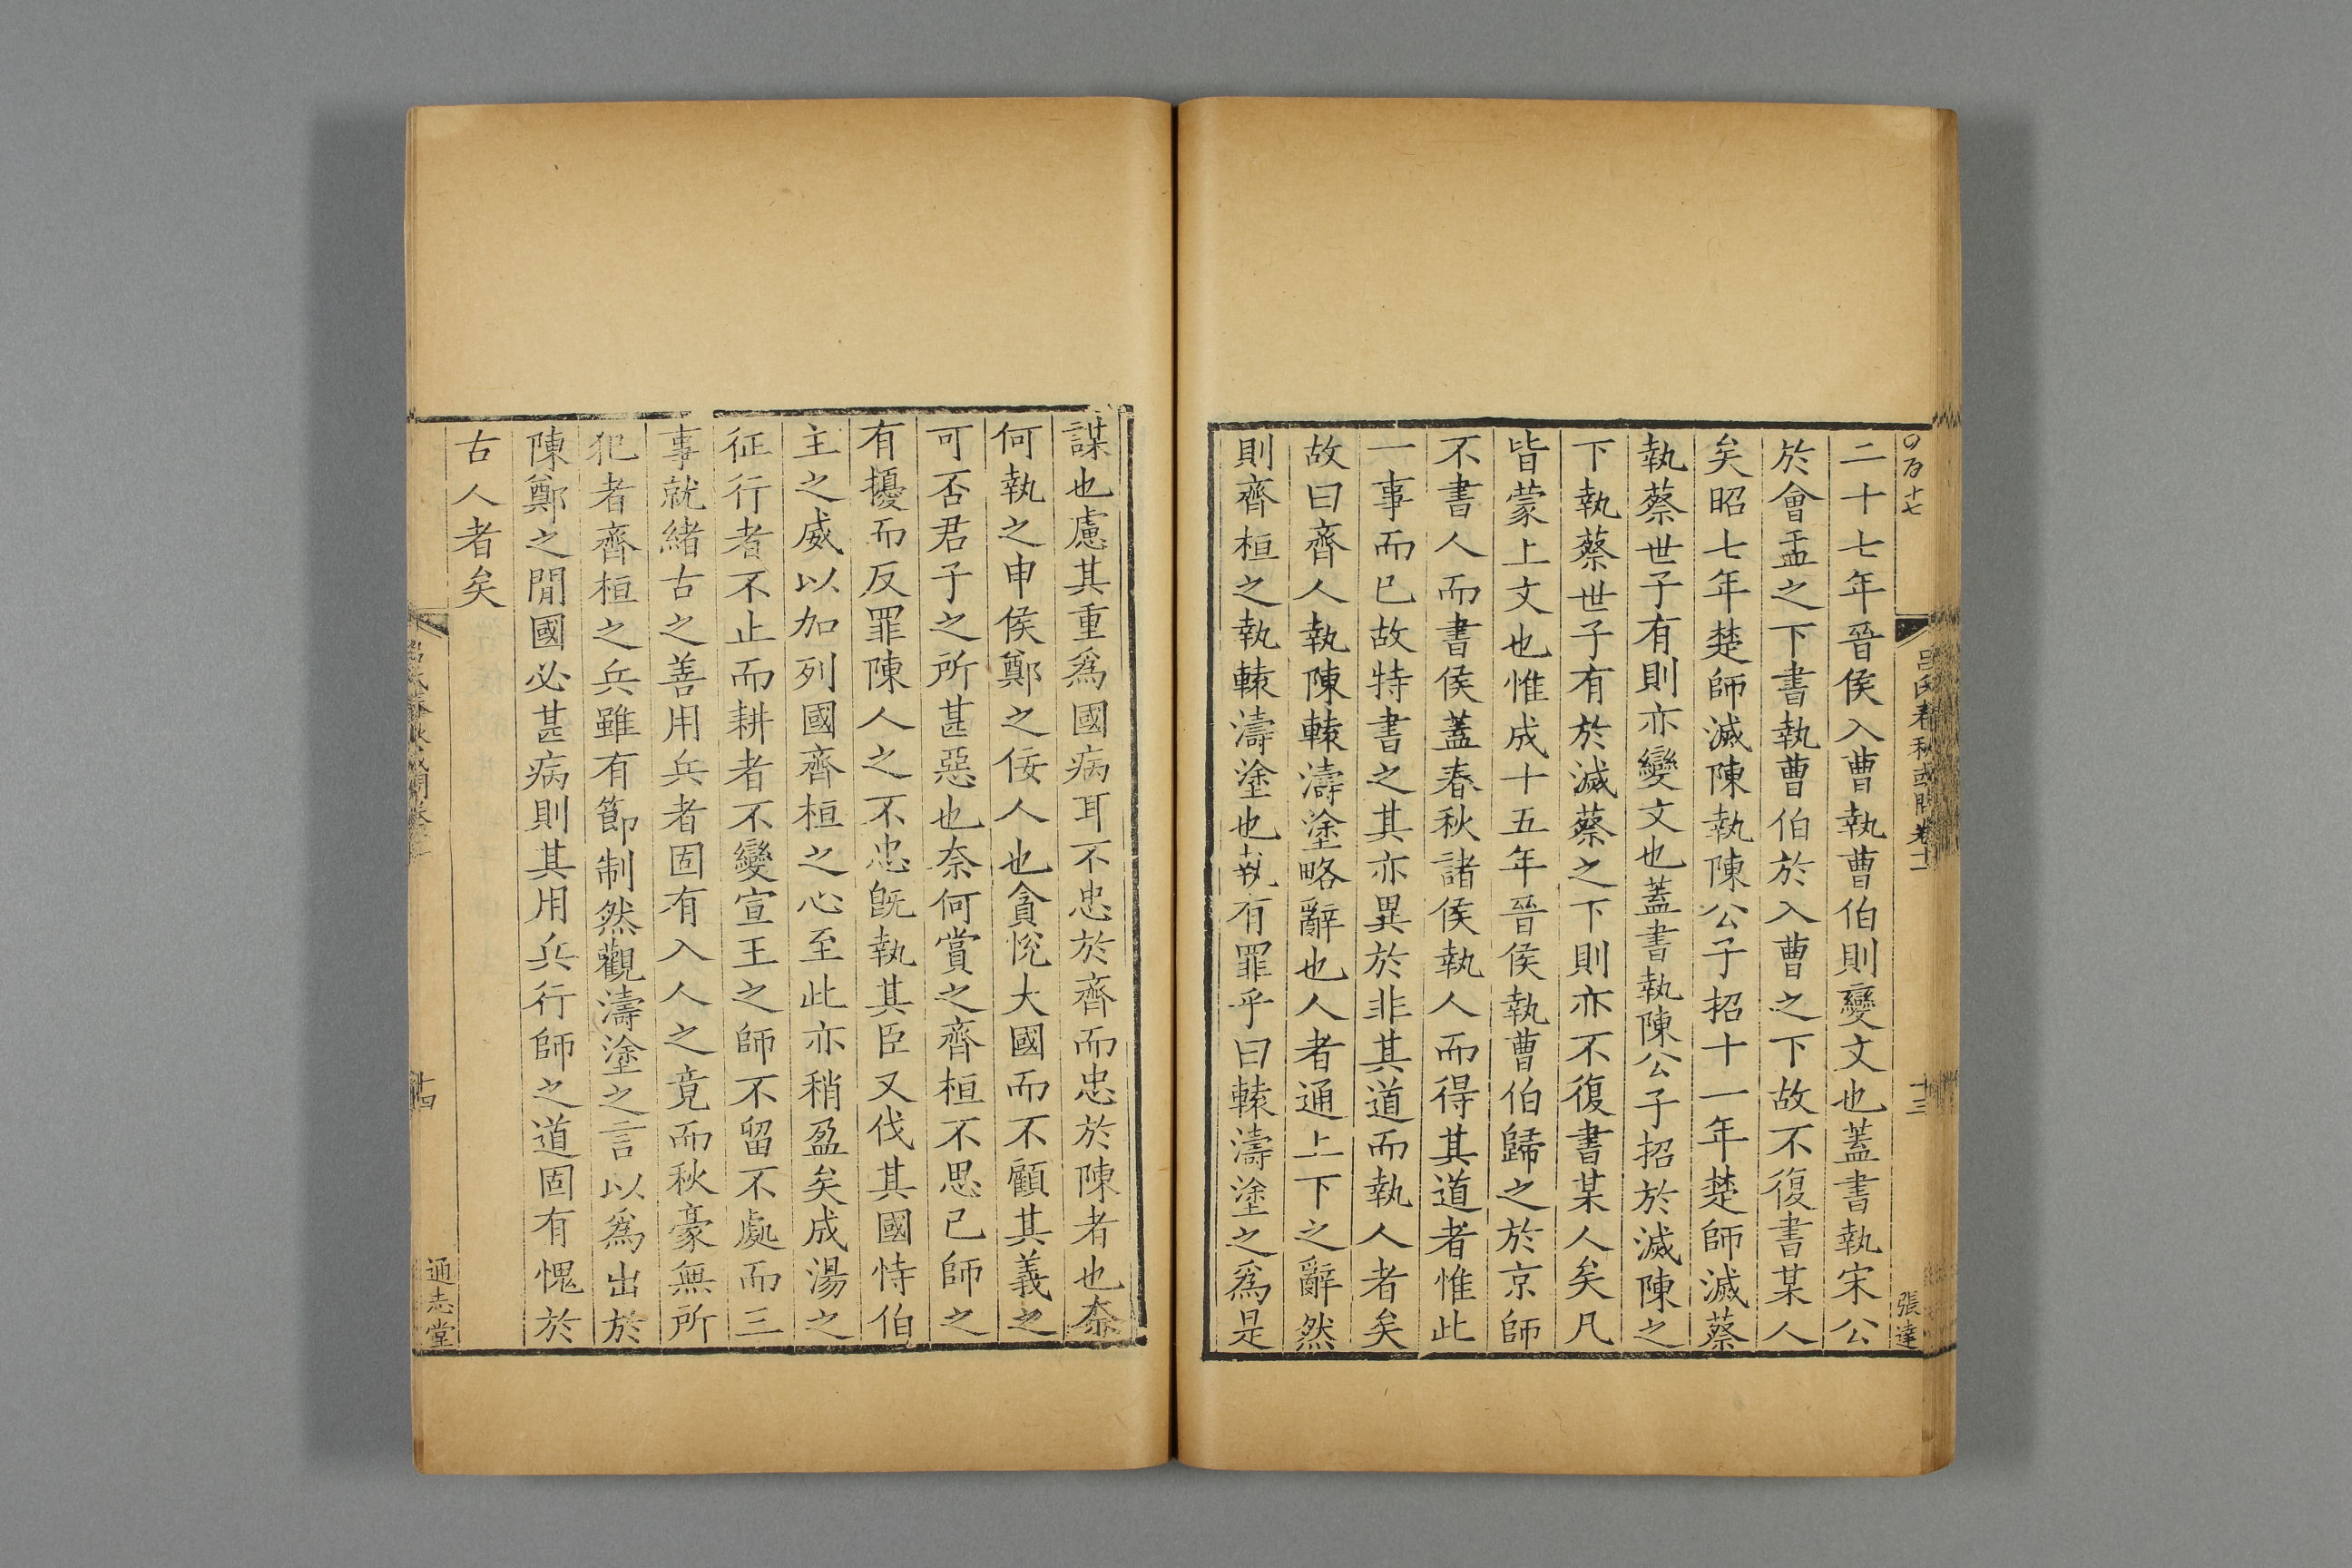 二十七年晉侯入曹執曹伯則變文也蓋書執宋公
於會盂之下書執曹伯於入曹之下故不復書某人
矣昭七年楚師滅陳執陳公子招十一年楚師滅蔡
執蔡世子有則亦變文也蓋書執陳公子招於滅陳之
下執蔡世子有於滅蔡之下則亦不復書某人矣凡
皆蒙上文也惟成十五年晉侯執曹伯歸之於京師
不書人而書侯蓋春秋諸侯執人而得其道者惟此
一事而已故特書之其亦異於非其道而執人者矣
故曰齊人執陳轅濤塗略辭也人者通上下之辭然
則齊桓之執轅濤塗也執有罪乎曰轅濤塗之爲是
謀也慮其重爲國病耳不忠於齊而忠於陳者也奈
何執之申侯鄭之佞人也貪悅大國而不顧其義之
可否君子之所甚惡也奈何賞之齊桓不思己師之
有擾而反罪陳人之不忠旣執其臣又伐其國恃伯
主之威以加列國齊桓之心至此亦稍盈矣成湯之
征行者不止而耕者不變宣王之師不留不處而三
事就緒古之善用兵者固有入人之竟而秋豪無所
犯者齊桓之兵雖有節制然觀濤塗之言以爲出於
陳鄭之閒國必甚病則其用兵行師之道固有愧於
古人者矣
呂氏春秋或問卷十二
十三
張達
十四
通志堂